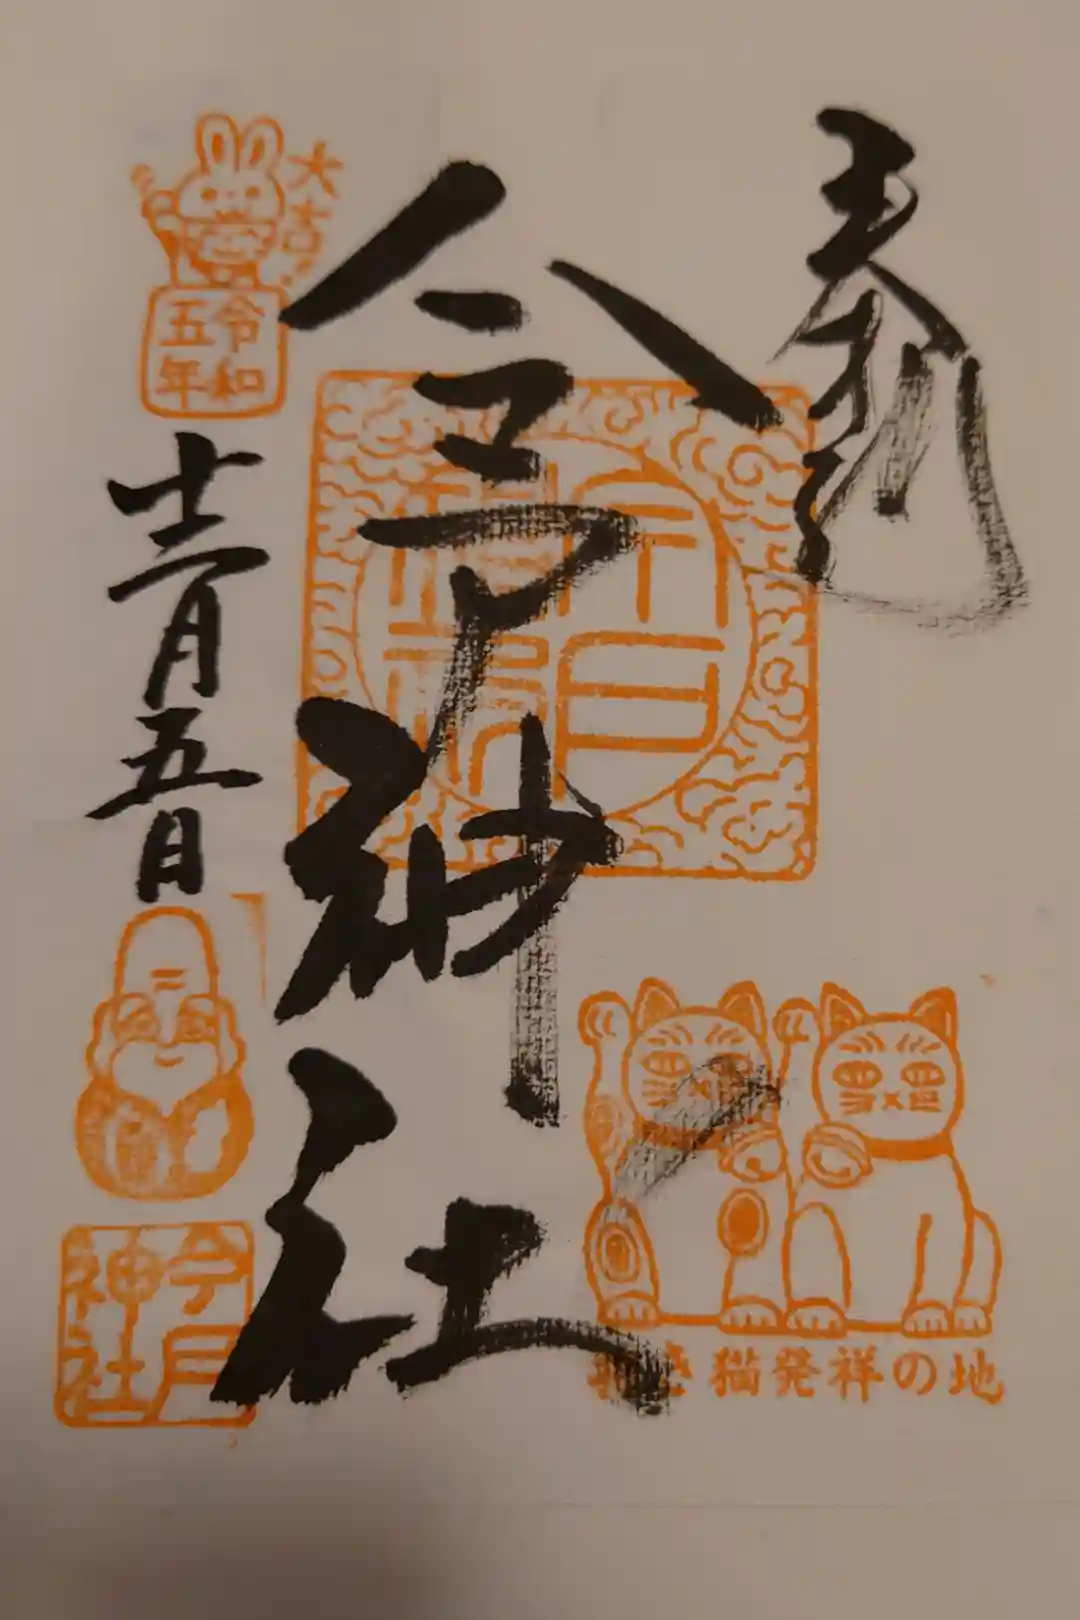 奉拝
今戸神社
大吉!
令和
五年
十二月五日
今戸
神社
招き猫発祥の地